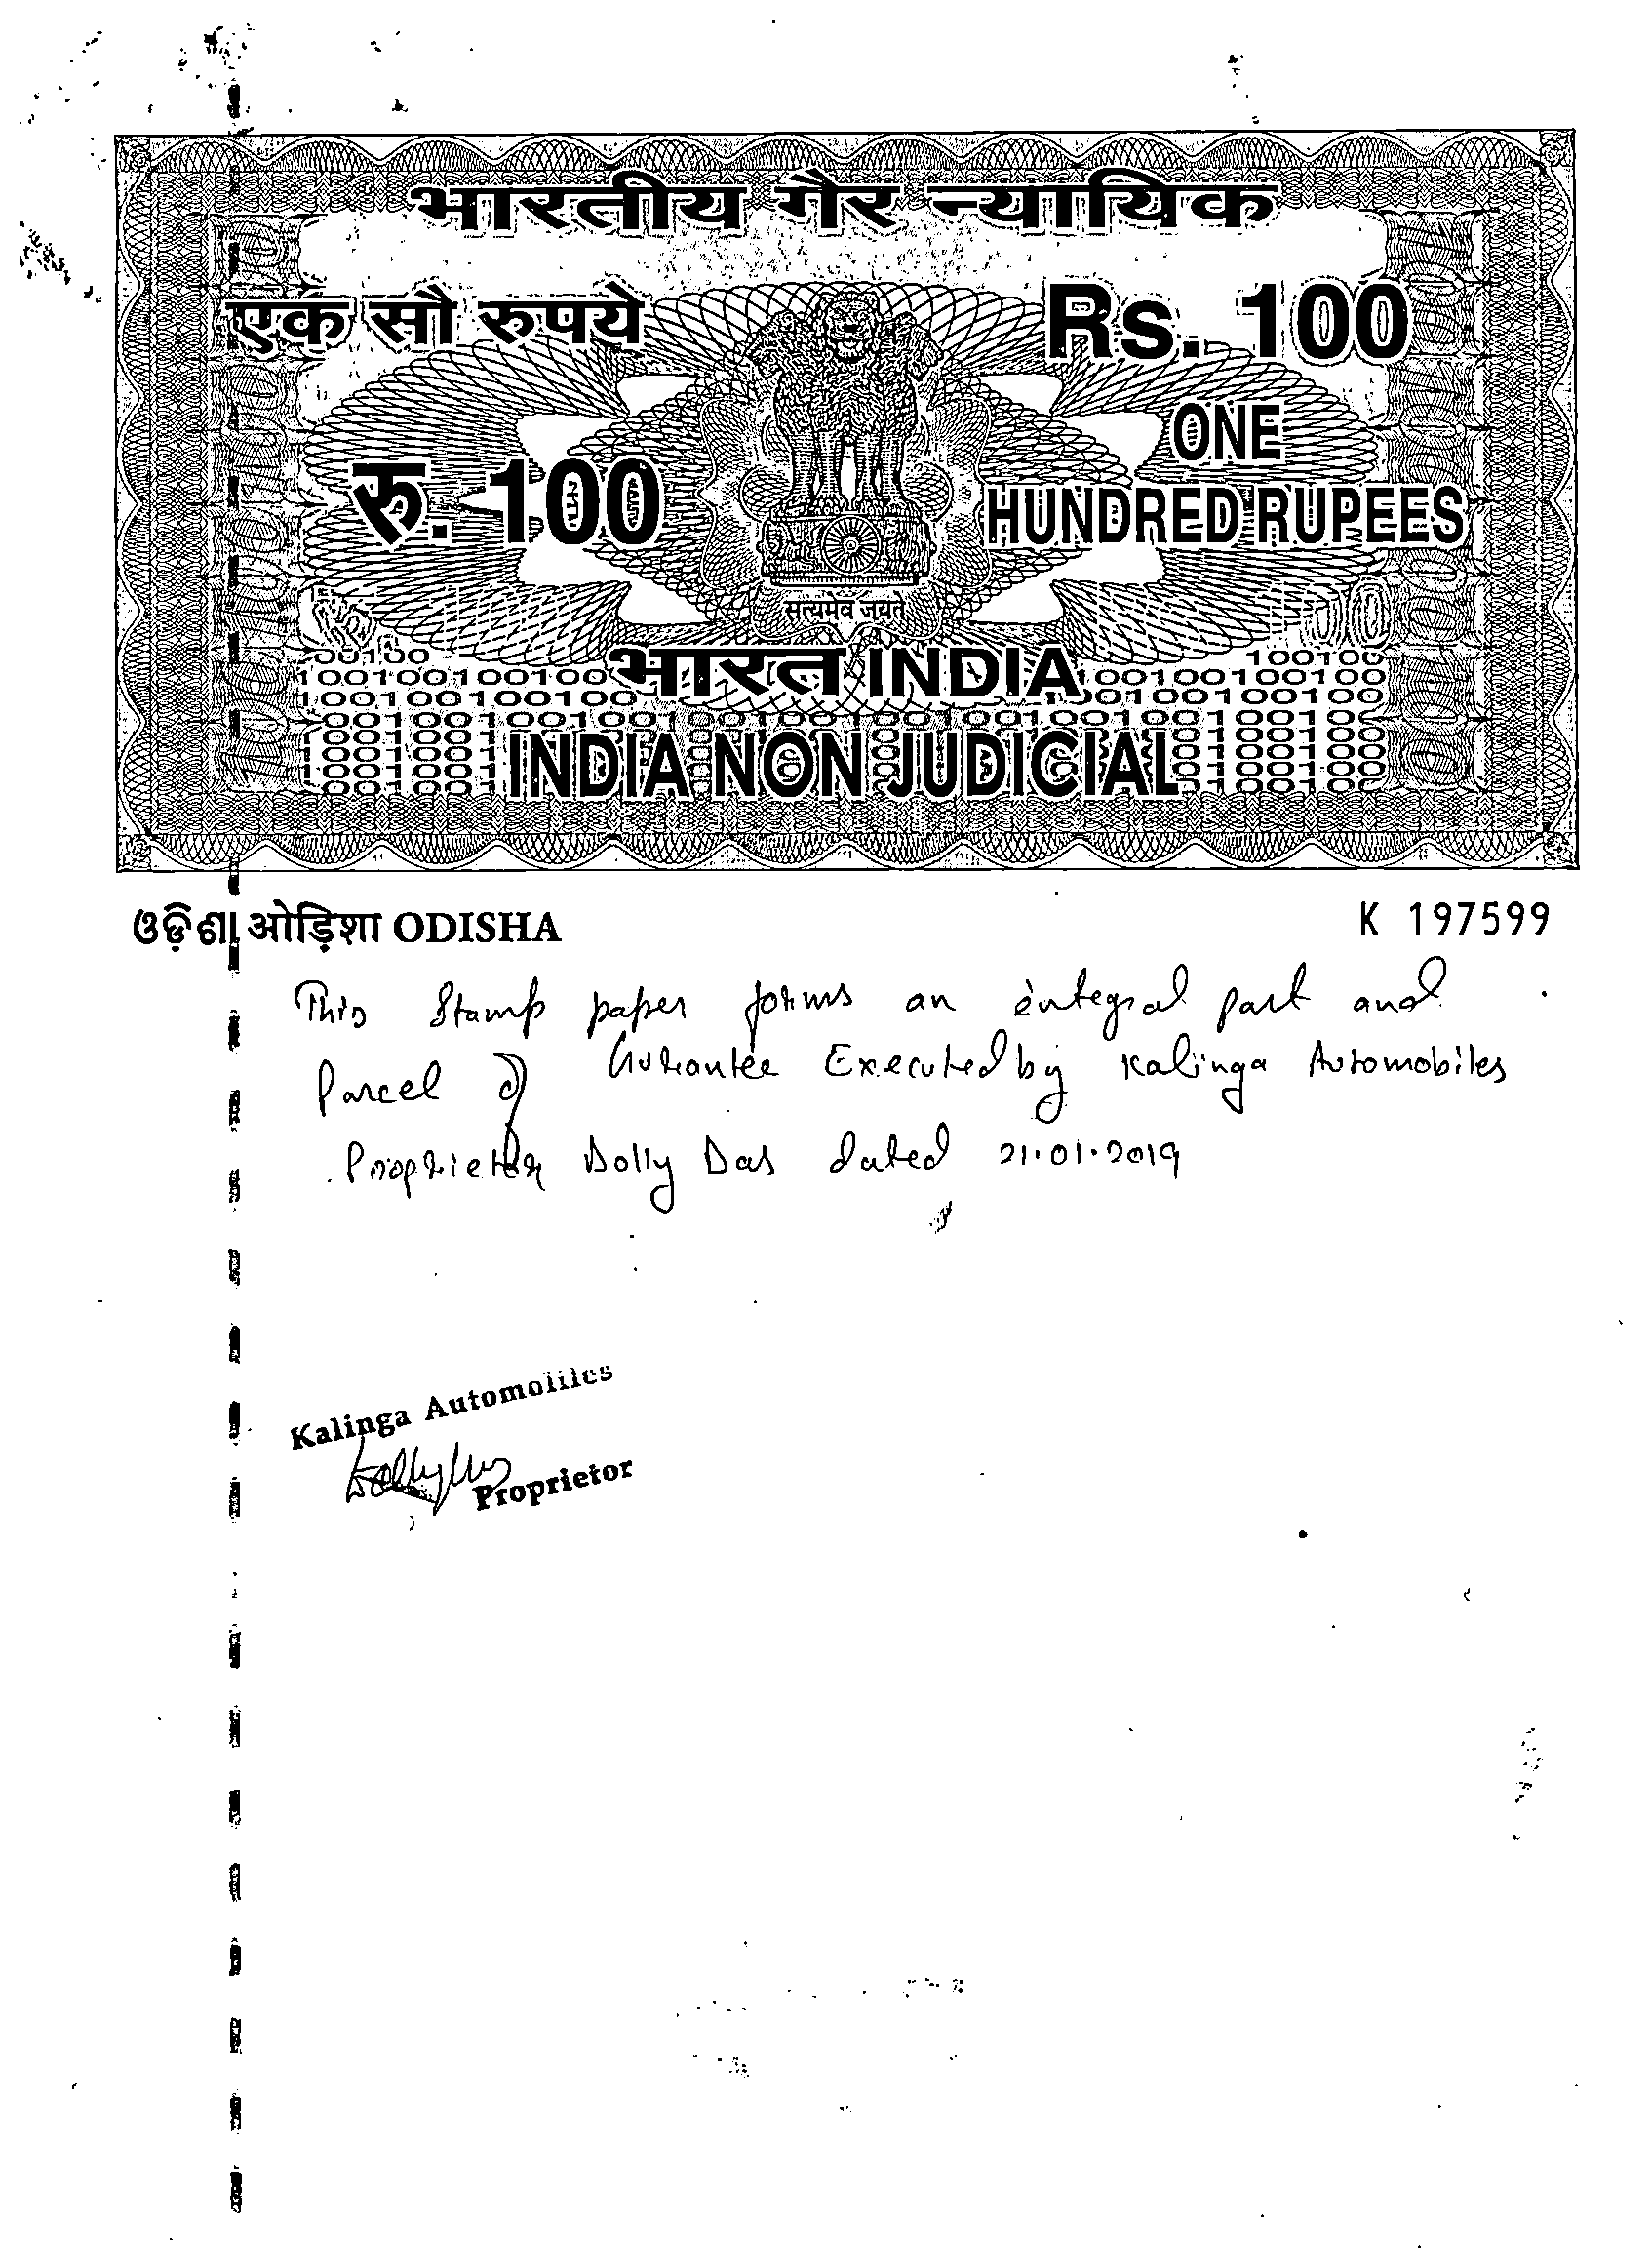 भारतीय गैर न्यायिक
एक सौ रुपये
Rs. 100
रु. 100
ONE
HUNDRED RUPEES
सत्यमेव जयते
भारत INDIA
INDIA NON JUDICIAL
ଓଡ଼ିଶା ओड़िशा ODISHA
K 197599
This Stamp paper forms an integral part and
Parcel of Gurantee Executed by Kalinga Automobiles
Proprietor Dolly Das dated 21.01.2019
Kalinga Automobiles
Proprietor